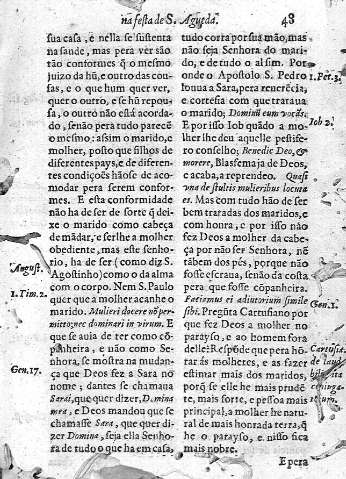 na festa de S. Agueda. 48
sua casa, e nella se sustenta
na saude, mas pera ver são
tão conformes q̃ o mesmo
juizo da hũ, e outro das cou-
sas, e o que hum quer ver,
quer o outro, e se hũ repou-
sa, o outro não està acorda-
do, senão pera tudo parecẽ
o mesmo; assim o marido, e
molher, posto que filhos de
differentes pays, e de diferen-
tes condiçoẽs hãose de aco-
modar pera serem confor-
mes. E esta conformidade
não ha de ser de sorte q̃ dei-
xe o marido como cabeça
de mãdar, e ser lhe a molher
obediente, mas este senho-
rio, ha de ser (como diz S.
Agostinho) como o da alma
com o corpo. Nem S. Paulo
quer que a molher acanhe o
marido. Mulieri docere nõ per-
mitto, nec dominari in virum. E
que se aia de ter como cõ-
panheira, e não como Se-
nhora, se mostra na mudan-
ça que Deos fez a Sara no
nome; dantes se chamaua
Sarai, que quer dizer, Domina
mea, e Deos mandou que se
chamasse Sara, que quer di-
zer Domina, seja ella Senho-
ra de tudo o que ha em casa,
August.
1. Tim. 2.
Gen. 17.
tudo corra por sua mão, mas
não seja Senhora do mari-
do, e de tudo o al sim. Por
onde o Apostolo S. Pedro
louua a Sara, pera reuerẽcia,
e cortesia com que trataua
o marido; Dominũ eum vocãs.
E por isso Iob quãdo a mo-
lher lhe deu aquelle pestife-
ro conselho; Benedic Deo, &
morere, Blasfema ja de Deos,
e acaba, a reprendeo. Quasi
vna de stultis mulieribus locuta
es. Mas com tudo hão de ser
bem traradas dos maridos, e
com honra, e por isso não
fez Deos a molher da cabe-
ça por não ser Senhora, nẽ
tãbem dos pés, porque não
fosse escraua, senão da costa
pera que fosse cõpanheira.
Faciemus ei adiutorium simile
sibi. Pregũta Cartusiano por
que fez Deos a molher no
parayso, e ao homem fora
delle? Respõde que pera hõ-
rar ás molheres, e as fazer
estimar mais dos maridos,
porq̃ se elle he mais prudẽ-
te, mais forte, e pessoa mais
principal, a molher he natu-
ral de mais honrada terra, q̃
he o parayso, e nisso fica
mais nobre.
1. Pet. 3.
Iob 2.
Gen. 2.
Cartusia.
de laud.
E pera